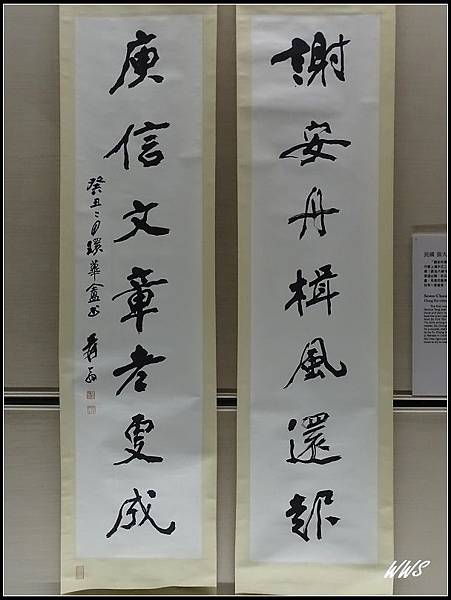 謝安舟楫風還起
庾信文章老更成
癸丑二月環蓽盦書
爰翁
民國 張大
WWS